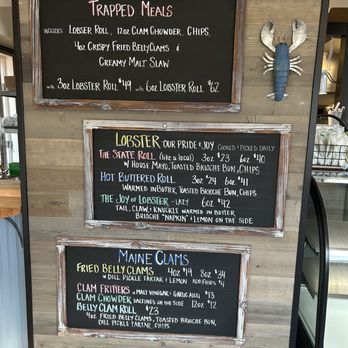 TRAPPED MEALS
INCLUDES LOBSER ROLL, 12OZ CLAM CHOWDER, CHIPS,
4OZ CRISPY FRIED BELLY CLAMS &
CREAMY MALT SLAW
WITH 3OZ LOBSTER ROLL $49 WITH 6OZ LOBSTER ROLL $62
LOBSTER OUR PRIDE & JOY COOKED & PICKED DAILY
THE STATE ROLL (LIKE A LOCAL) 3OZ $23 6OZ $40
W/ HOUSE MAYO, TOASTED BRIOCHE BUN, CHIPS
HOT BUTTERED ROLL 3OZ $24 6OZ $41
WARMED IN BUTTER, TOASTED BRIOCHE BUN, CHIPS
THE JOY OF LOBSTER - LAZY 6OZ $42
TAIL, CLAW & KNUCKLE WARMED IN BUTTER
BRIOCHE "NAPKIN" & LEMON ON THE SIDE
MAINE CLAMS
FRIED BELLY CLAMS 4OZ $19 8OZ $34
W/ DILL PICKLE TARTAR & LEMON ADD FRIES $4
CLAM FRITTERS W/ MALT VINEGAR & GARLIC AIOLI $13
CLAM CHOWDER SALTINES ON THE SIDE 12OZ $12
BELLY CLAM ROLL $23
4OZ FRIED BELLY CLAMS, TOASTED BRIOCHE BUN,
DILL PICKLE TARTAR, CHIPS